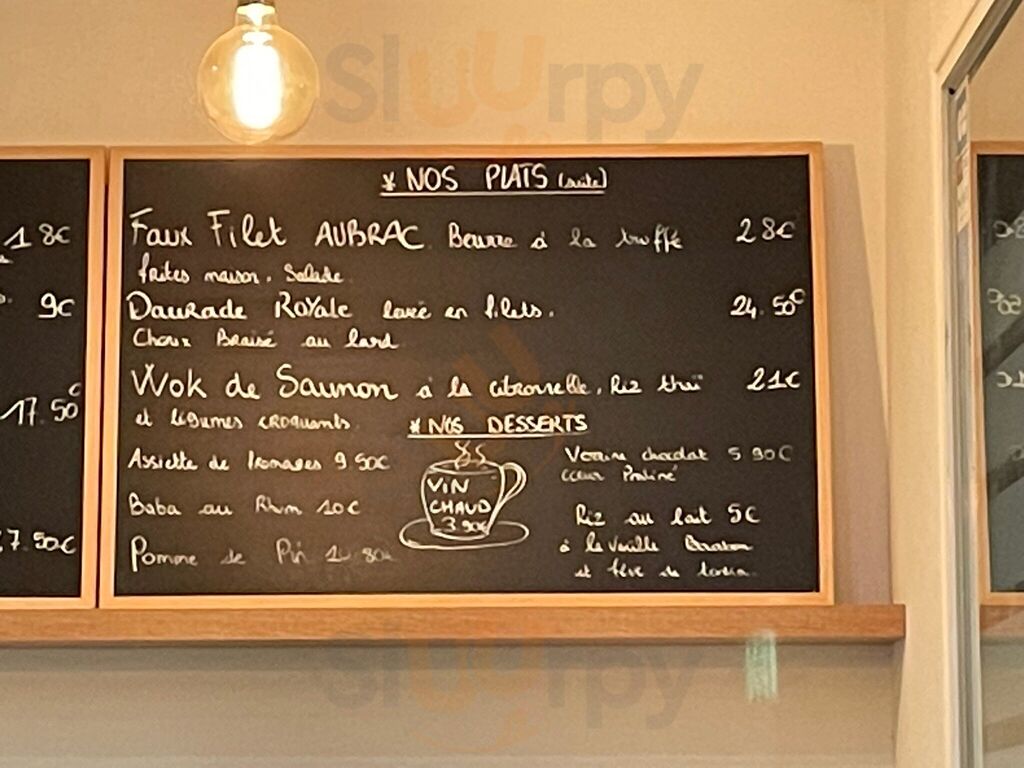 Sluurpy
18€
9€
17.50€
7.50€
* NOS PLATS (suite)
Faux Filet AUBRAC Beurre à la truffe 28€
frites maison, Salade
Daurade Royale levée en filets. 24.50€
Choux Braisé au lard
Wok de Saumon à la citronnelle, Riz thaï 21€
et légumes croquants
* NOS DESSERTS
Assiette de fromages 9 50€
Baba au Rhum 10€
Pomme de Pin
VIN
CHAUD
3.90€
Verrine chocolat 5 90€
cœur Praliné
Riz au lait 5€
à la vanille Bourbon
et fève de tonka
Sluurpy